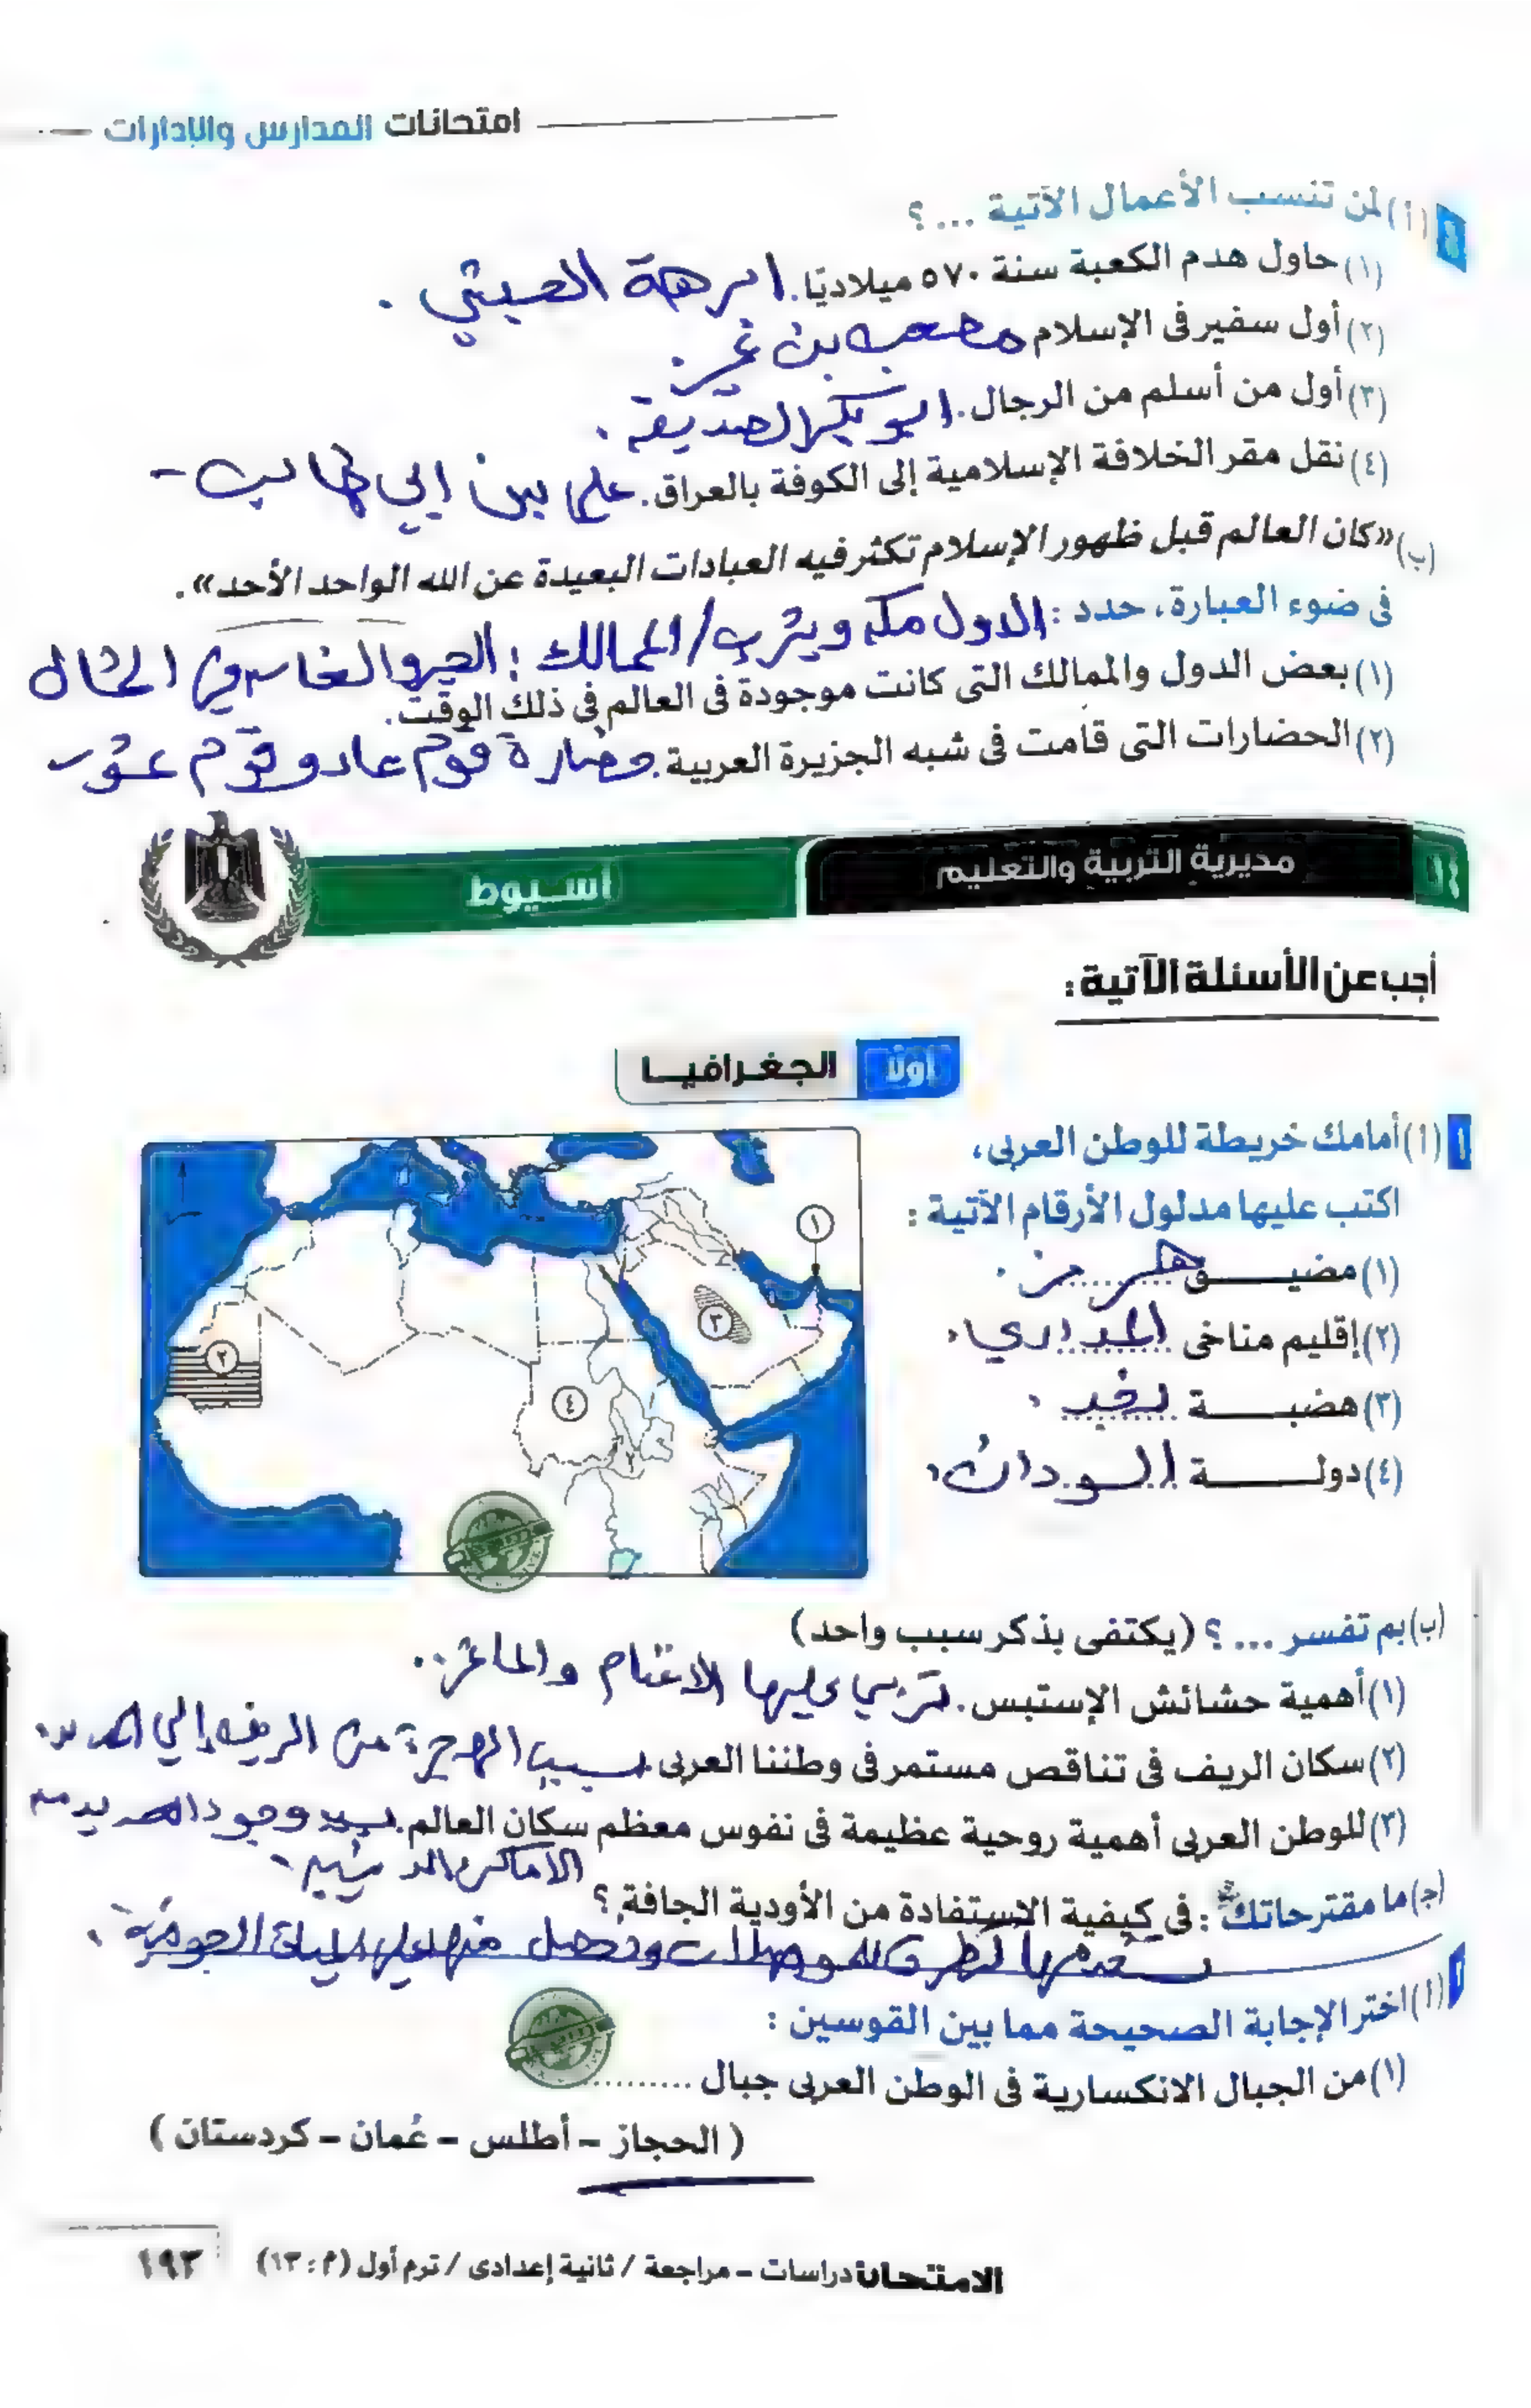 امتحانات المدارس والإدارات
٤ (أ) لمن تنسب الأعمال الآتية ... ؟
(١) حاول هدم الكعبة سنة ٥٧٠ ميلاديًا. ابرهة الحبشي .
(٢) أول سفير فى الإسلام مصعب بن عمير.
(٣) أول من أسلم من الرجال. ابو بكر الصديق .
(٤) نقل مقر الخلافة الإسلامية إلى الكوفة بالعراق. علي بن ابي طالب -
(ب) «كان العالم قبل ظهور الإسلام تكثر فيه العبادات البعيدة عن الله الواحد الأحد» .
فى ضوء العبارة، حدد : الدول مكه ويثرب / الممالك :
(١) بعض الدول والممالك التى كانت موجودة فى العالم فى ذلك الوقت.
(٢) الحضارات التى قامت فى شبه الجزيرة العربية. حضارة قوم عاد وقوم
٥٤ مديرية التربية والتعليم أسـيوط
أجب عن الأسئلة الآتية :
أولاً الجغـرافيـا
١ (أ) أمامك خريطة للوطن العربى،
اكتب عليها مدلول الأرقام الآتية :
(١) مضيـــق هرمز .
(٢) إقليم مناخى المداري
(٣) هضبـــة نجد
(٤) دولـــة السودان
١
٢
٣
٤
(ب) بم تفسر ... ؟ (يكتفى بذكر سبب واحد)
(١) أهمية حشائش الإستبس. تربي عليها الاغنام والماعز..
(٢) سكان الريف فى تناقص مستمر فى وطننا العربى. بسبب الهجرة من الريف إلي المدن.
(٣) للوطن العربى أهمية روحية عظيمة فى نفوس معظم سكان العالم. بسبب وجود العديد من
الاماكن الدينيه -
(ج) ما مقترحاتك : فى كيفية الاستفادة من الأودية الجافة ؟
المياة الجوفية .
٢ (أ) اختر الإجابة الصحيحة مما بين القوسين :
(١) من الجبال الانكسارية فى الوطن العربى جبال ..........
( الحجاز - أطلس - عُمان - كردستان )
الامتحان دراسات - مراجعة / ثانية إعدادى / ترم أول (م : ١٣) ١٩٣